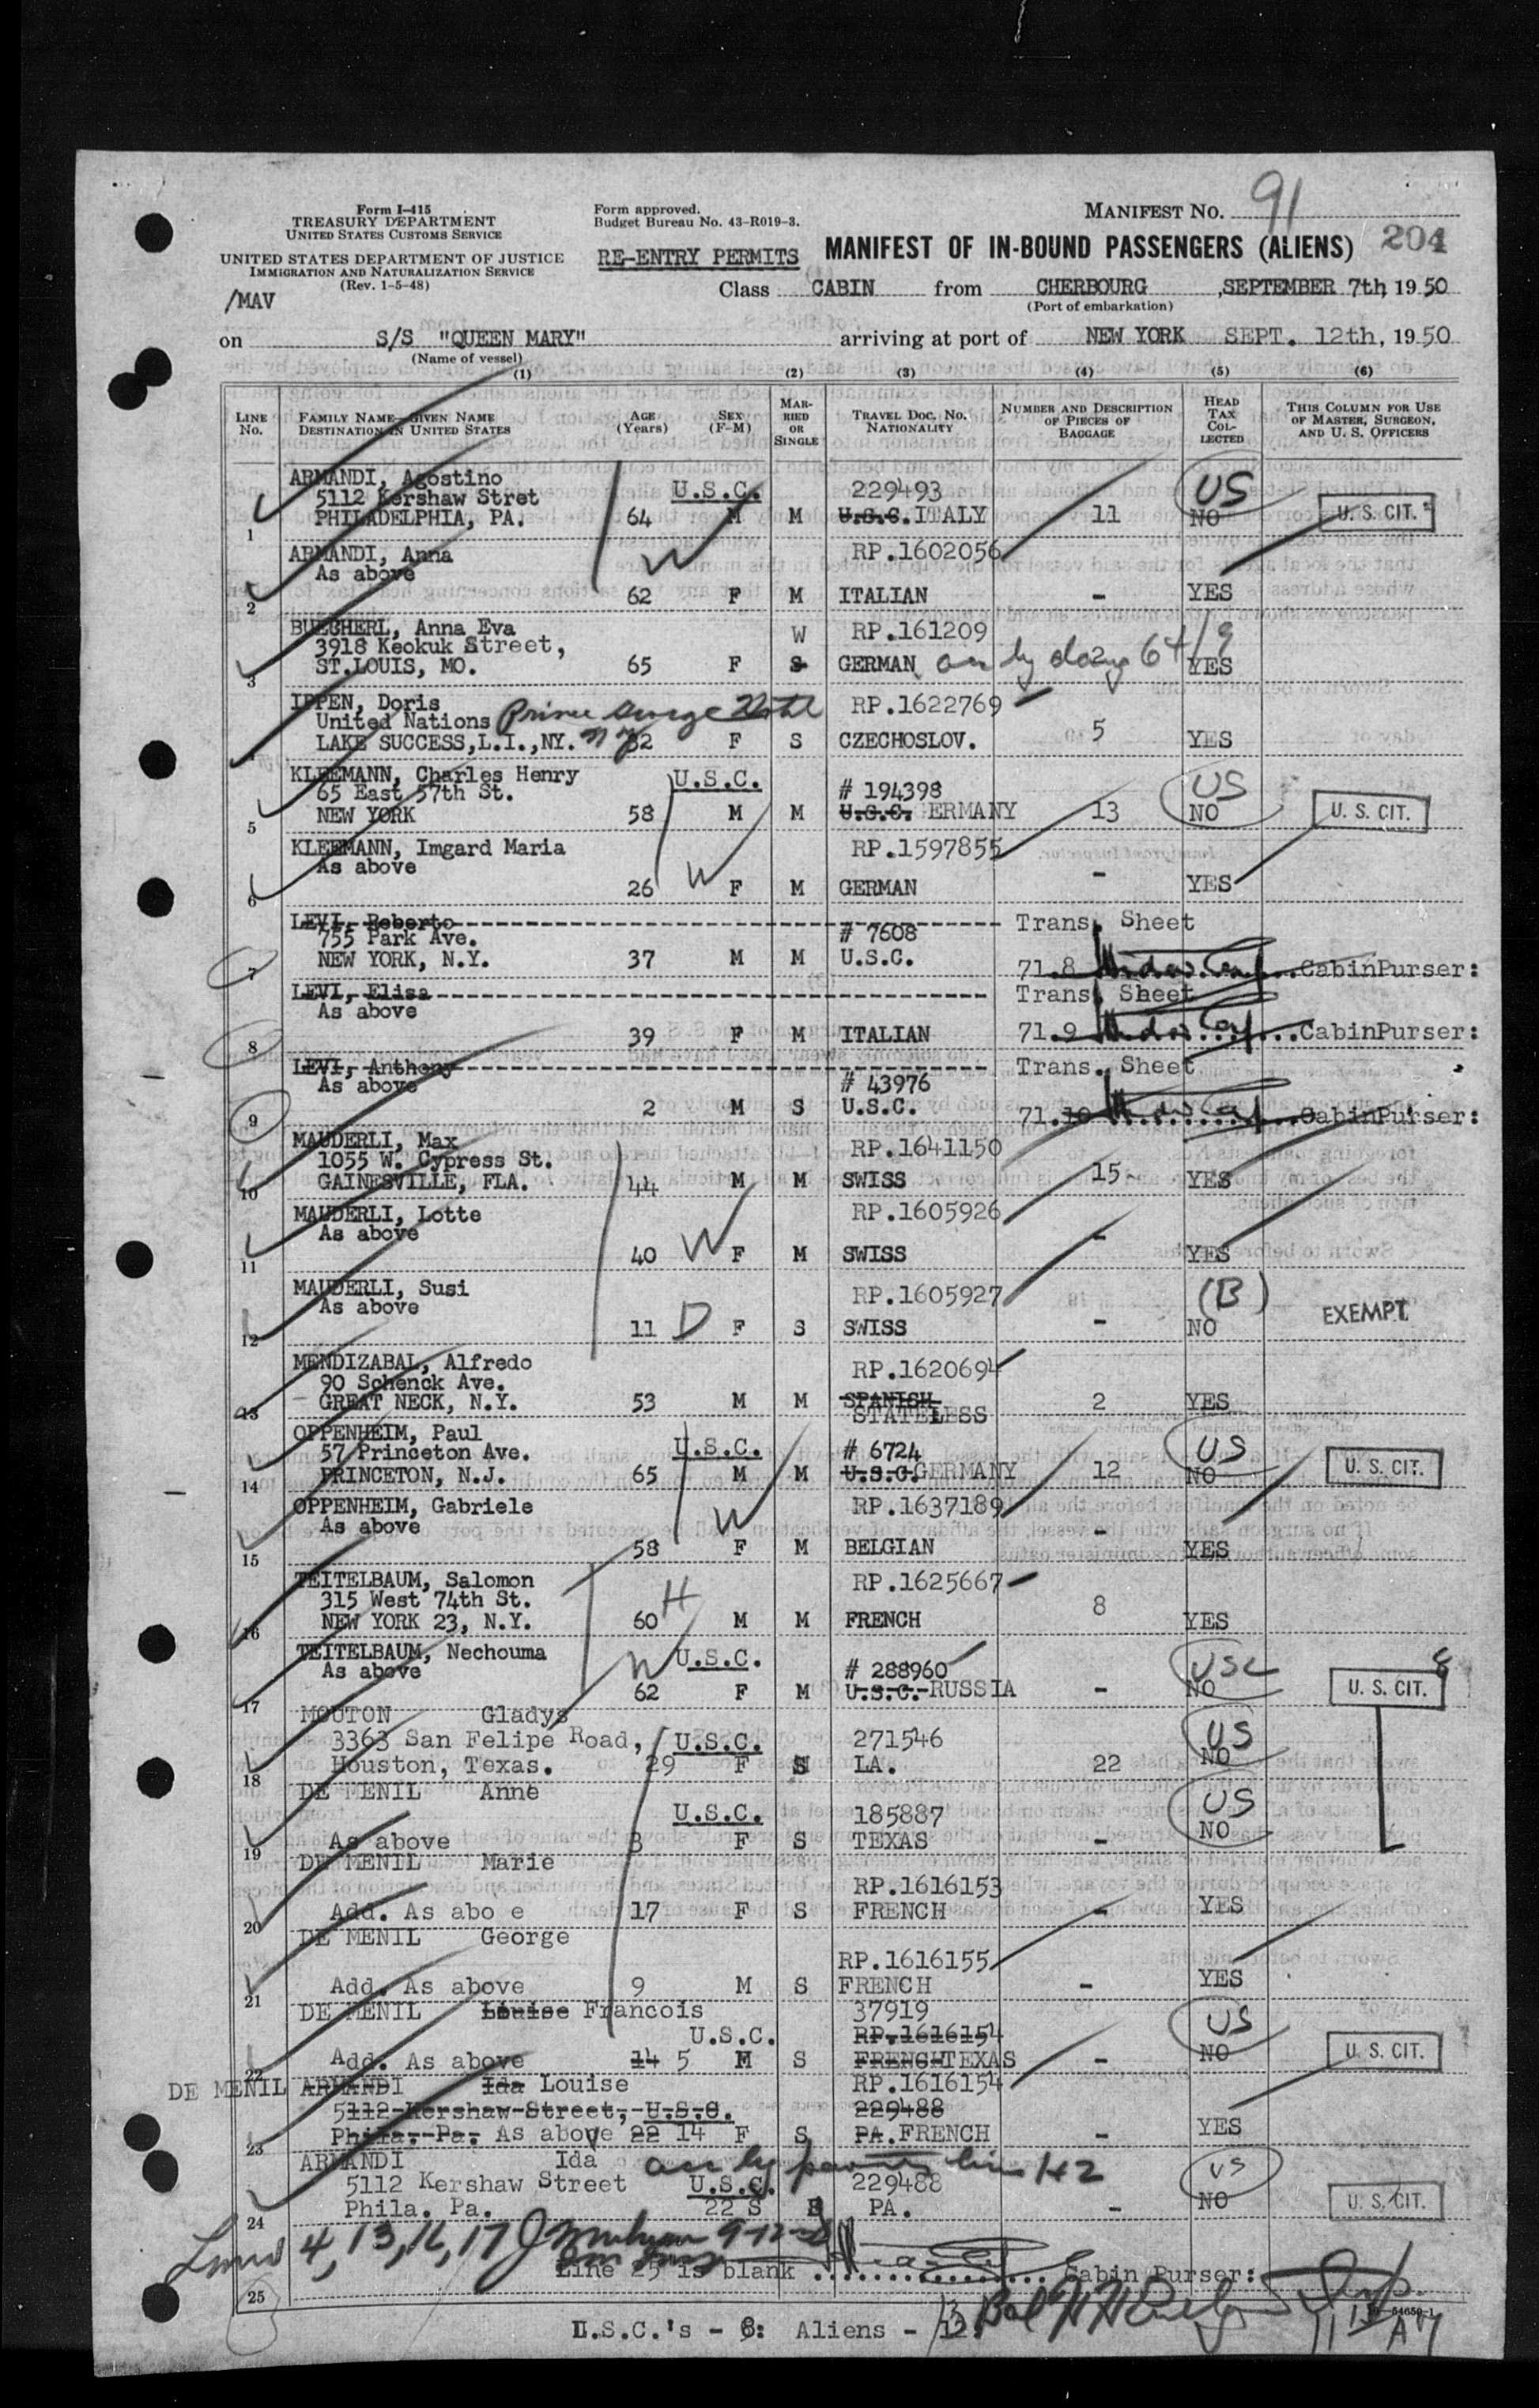 Form I-415
TREASURY DEPARTMENT
UNITED STATES CUSTOMS SERVICE
UNITED STATES DEPARTMENT OF JUSTICE
IMMIGRATION AND NATURALIZATION SERVICE
(Rev. 1-5-48)
/MAV
Form approved.
Budget Bureau No. 43-R019-3.
RE-ENTRY PERMITS
MANIFEST NO. 91
MANIFEST OF IN-BOUND PASSENGERS (ALIENS) 204
Class CABIN from CHERBOURG ,SEPTEMBER 7th, 1950
(Port of embarkation)
on S/S "QUEEN MARY" arriving at port of NEW YORK SEPT. 12th, 1950
(Name of vessel)
(1) (2) (3) (4) (5) (6)
LINE No. FAMILY NAME—GIVEN NAME DESTINATION IN UNITED STATES AGE (Years) SEX (F-M) MARRIED OR SINGLE TRAVEL DOC. NO. NATIONALITY NUMBER AND DESCRIPTION OF PIECES OF BAGGAGE HEAD TAX COLLECTED THIS COLUMN FOR USE OF MASTER, SURGEON, AND U. S. OFFICERS
ARMANDI, Agostino U.S.C. 229493 US
5112 Kershaw Stret
1 PHILADELPHIA, PA. 64 M M U.S.C. ITALY 11 NO U. S. CIT.
ARMANDI, Anna RP.1602056
As above W
2 62 F M ITALIAN - YES
BUECHERL, Anna Eva W RP.161209
3918 Keokuk Street,
3 ST.LOUIS, MO. 65 F S GERMAN YES
IPPEN, Doris RP.1622769
United Nations Prince George Hotel
4 LAKE SUCCESS,L.I.,NY. NY 32 F S CZECHOSLOV. 5 YES
KLEEMANN, Charles Henry U.S.C. # 194398 US
65 East 57th St.
5 NEW YORK 58 M M U.S.C. GERMANY 13 NO U. S. CIT.
KLEEMANN, Imgard Maria RP.1597855
As above W
6 26 F M GERMAN - YES
LEVI, Roberto # 7608 Trans. Sheet
755 Park Ave.
7 NEW YORK, N.Y. 37 M M U.S.C. 71.8 CabinPurser:
LEVI, Elisa Trans. Sheet
As above
8 39 F M ITALIAN 71.9 CabinPurser:
LEVI, Anthony Trans. Sheet
As above # 43976
9 2 M S U.S.C. 71.10 CabinPurser:
MAUDERLI, Max RP.1641150
1055 W. Cypress St.
10 GAINESVILLE, FLA. 44 M M SWISS 15 YES
MAUDERLI, Lotte RP.1605926
As above W
11 40 F M SWISS - YES
MAUDERLI, Susi RP.1605927 (B)
As above EXEMPT
12 11 D F S SWISS - NO
MENDIZABAL, Alfredo RP.1620694
90 Schenck Ave.
13 GREAT NECK, N.Y. 53 M M SPANISH 2 YES
STATELESS
OPPENHEIM, Paul U.S.C. # 6724 US
57 Princeton Ave.
14 PRINCETON, N.J. 65 M M U.S.C. GERMANY 12 NO U. S. CIT.
OPPENHEIM, Gabriele RP.1637189
As above W
15 58 F M BELGIAN - YES
TEITELBAUM, Salomon RP.1625667
315 West 74th St. H
16 NEW YORK 23, N.Y. 60 M M FRENCH 8 YES
TEITELBAUM, Nechouma U.S.C. # 288960 USC
As above W
17 62 F M U.S.C.-RUSSIA - NO U. S. CIT.
MOUTON Gladys
3363 San Felipe Road, U.S.C. 271546 US
18 Houston, Texas. 29 F S LA. 22 NO
DE MENIL Anne
U.S.C. 185887 US
19 As above 3 F S TEXAS - NO
DE MENIL Marie
RP.1616153
20 Add. As abo e 17 F S FRENCH - YES
DE MENIL George
RP.1616155
21 Add. As above 9 M S FRENCH - YES
DE MENIL Louise Francois 37919 US
U.S.C. RP.1616154
22 Add. As above 14 5 M S FRENCH TEXAS - NO U. S. CIT.
DE MENIL ARMANDI Ida Louise RP.1616154
5112-Kershaw-Street,-U.S.C. 229488
23 Phila.-Pa. As above 22 14 F S PA. FRENCH - YES
ARMANDI Ida US
5112 Kershaw Street U.S.C. 229488
24 Phila. Pa. 22 S PA. - NO U. S. CIT.
Lines 4, 13, 16, 17
Line 25 is blank Cabin Purser:
25
U.S.C.'s - 8: Aliens - 12.